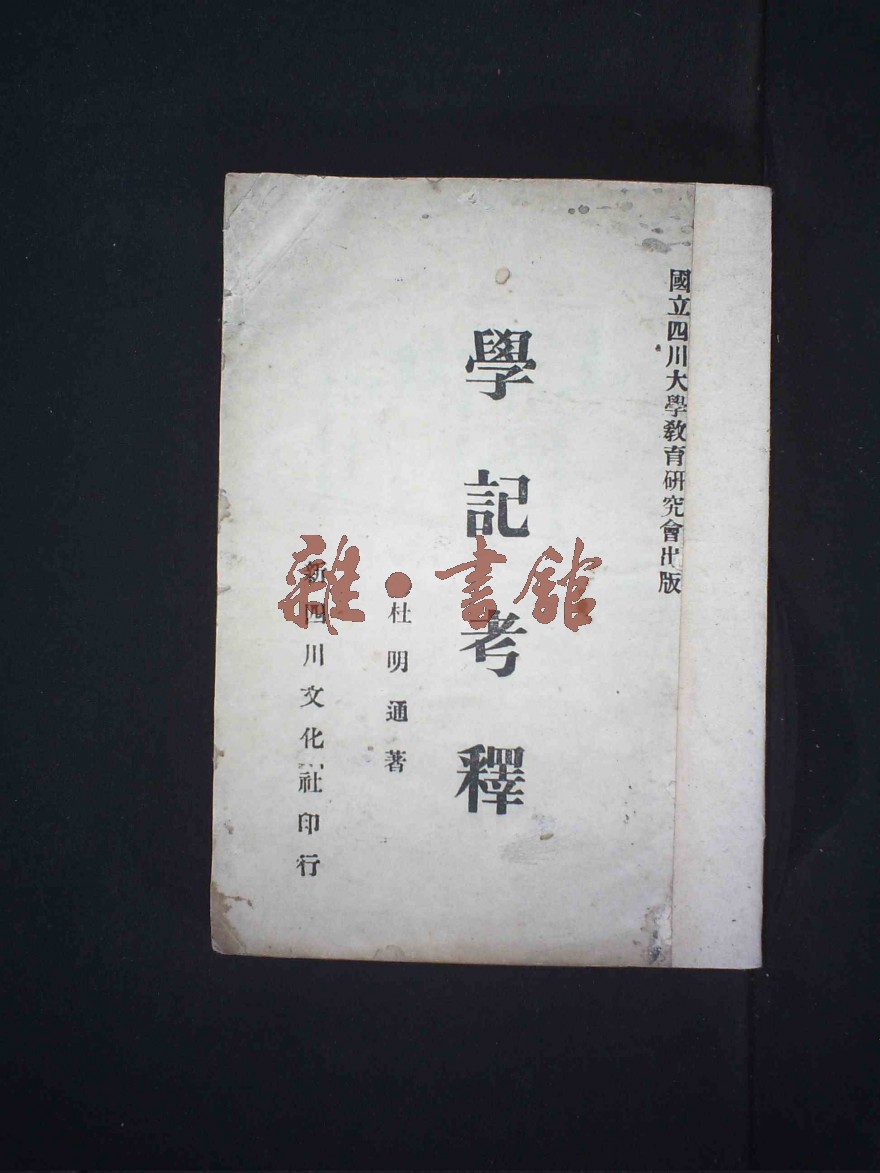 國立四川大學教育研究會出版
學記考釋
杜明通著
新四川文化社印行
雜·書館